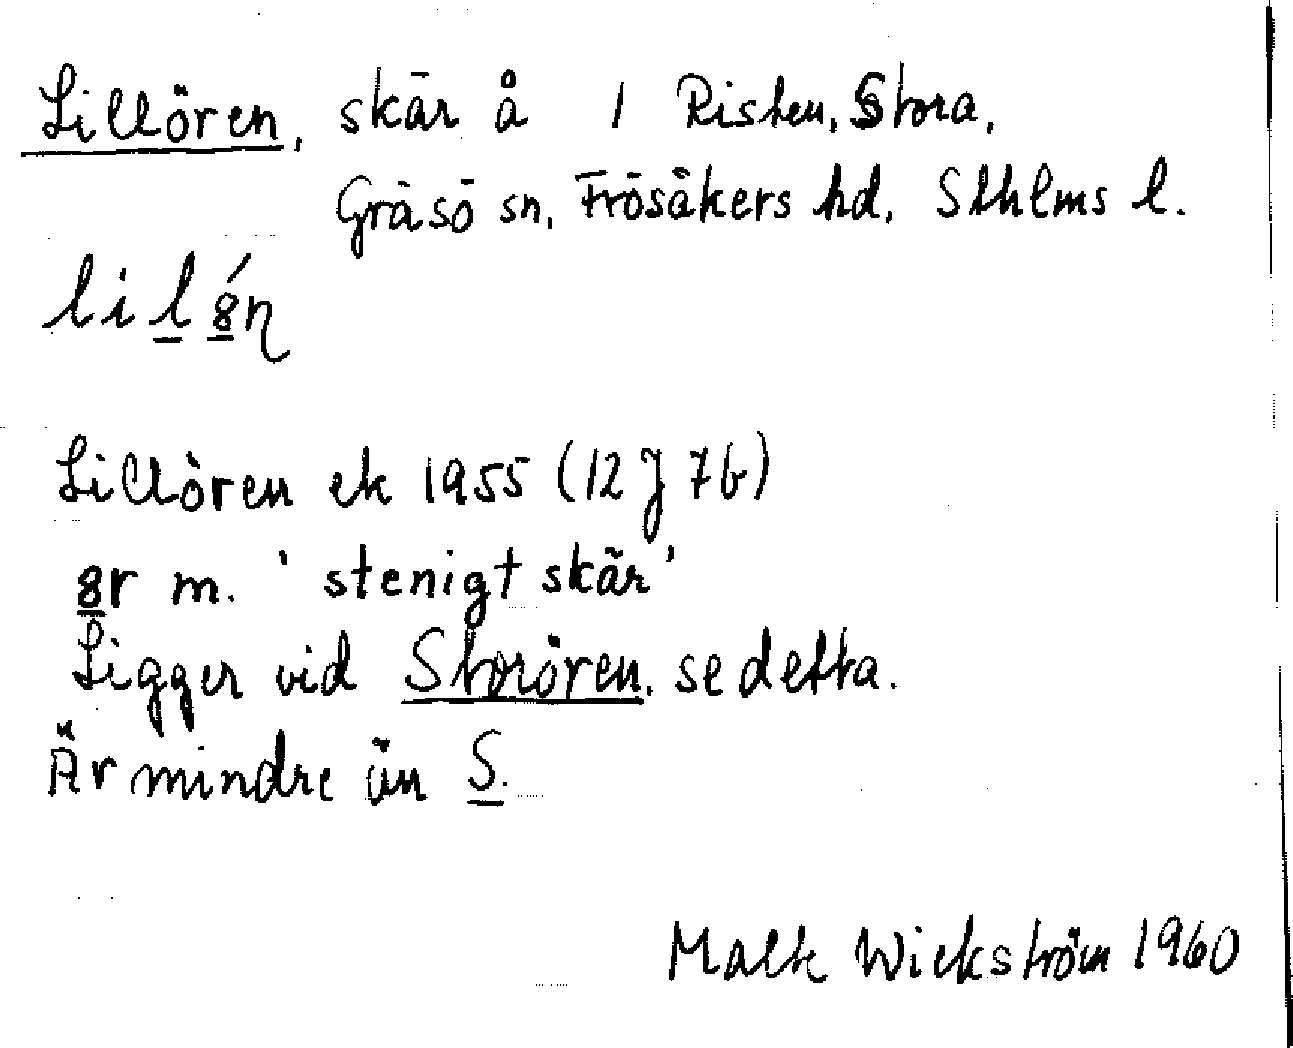 Lillören, skär å 1 Risten, Stora,
Gräsö sn, Frösåkers hd, Sthlms l.
lil8́ɳ
Lillören ek 1955 (12 J 7b)
8r m. 'stenigt skär'
Ligger vid Storören, se detta.
Är mindre än S.
Malte Wickström 1960